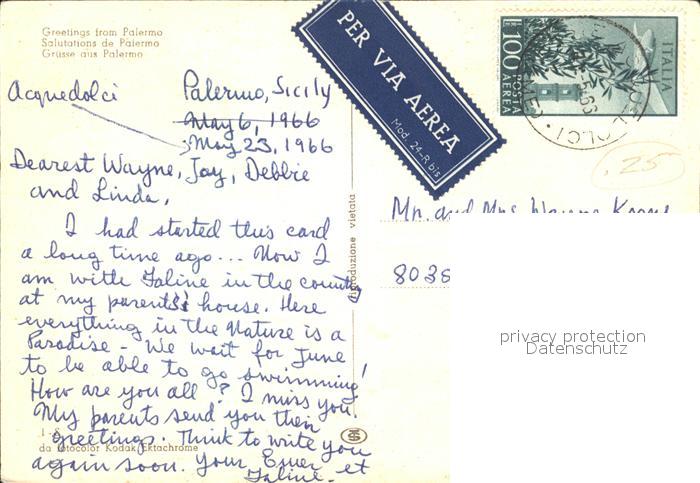 Greetings from Palermo
Salutations de Palermo
Grüsse aus Palermo
Acquedolci
Palermo, Sicily
May 6, 1966
May 23, 1966
Dearest Wayne, Jay, Debbie
and Linda,
I had started this card
a long time ago... Now I
am with Faline in the country
at my parents's house. Here
everything in the Nature is a
Paradise - We wait for June
to be able to go swimming!
How are you all? I miss you.
My parents send you their
greetings. Think to write you
again soon. Your Ester et
Faline.
da fotocolor Kodak Ektachrome
Riproduzione vietata
PER VIA AEREA
Mod. 24-R bis
L. 100
POSTA AEREA
ITALIA
.25
Mr. and Mrs. Wayne
8035
privacy protection
Datenschutz